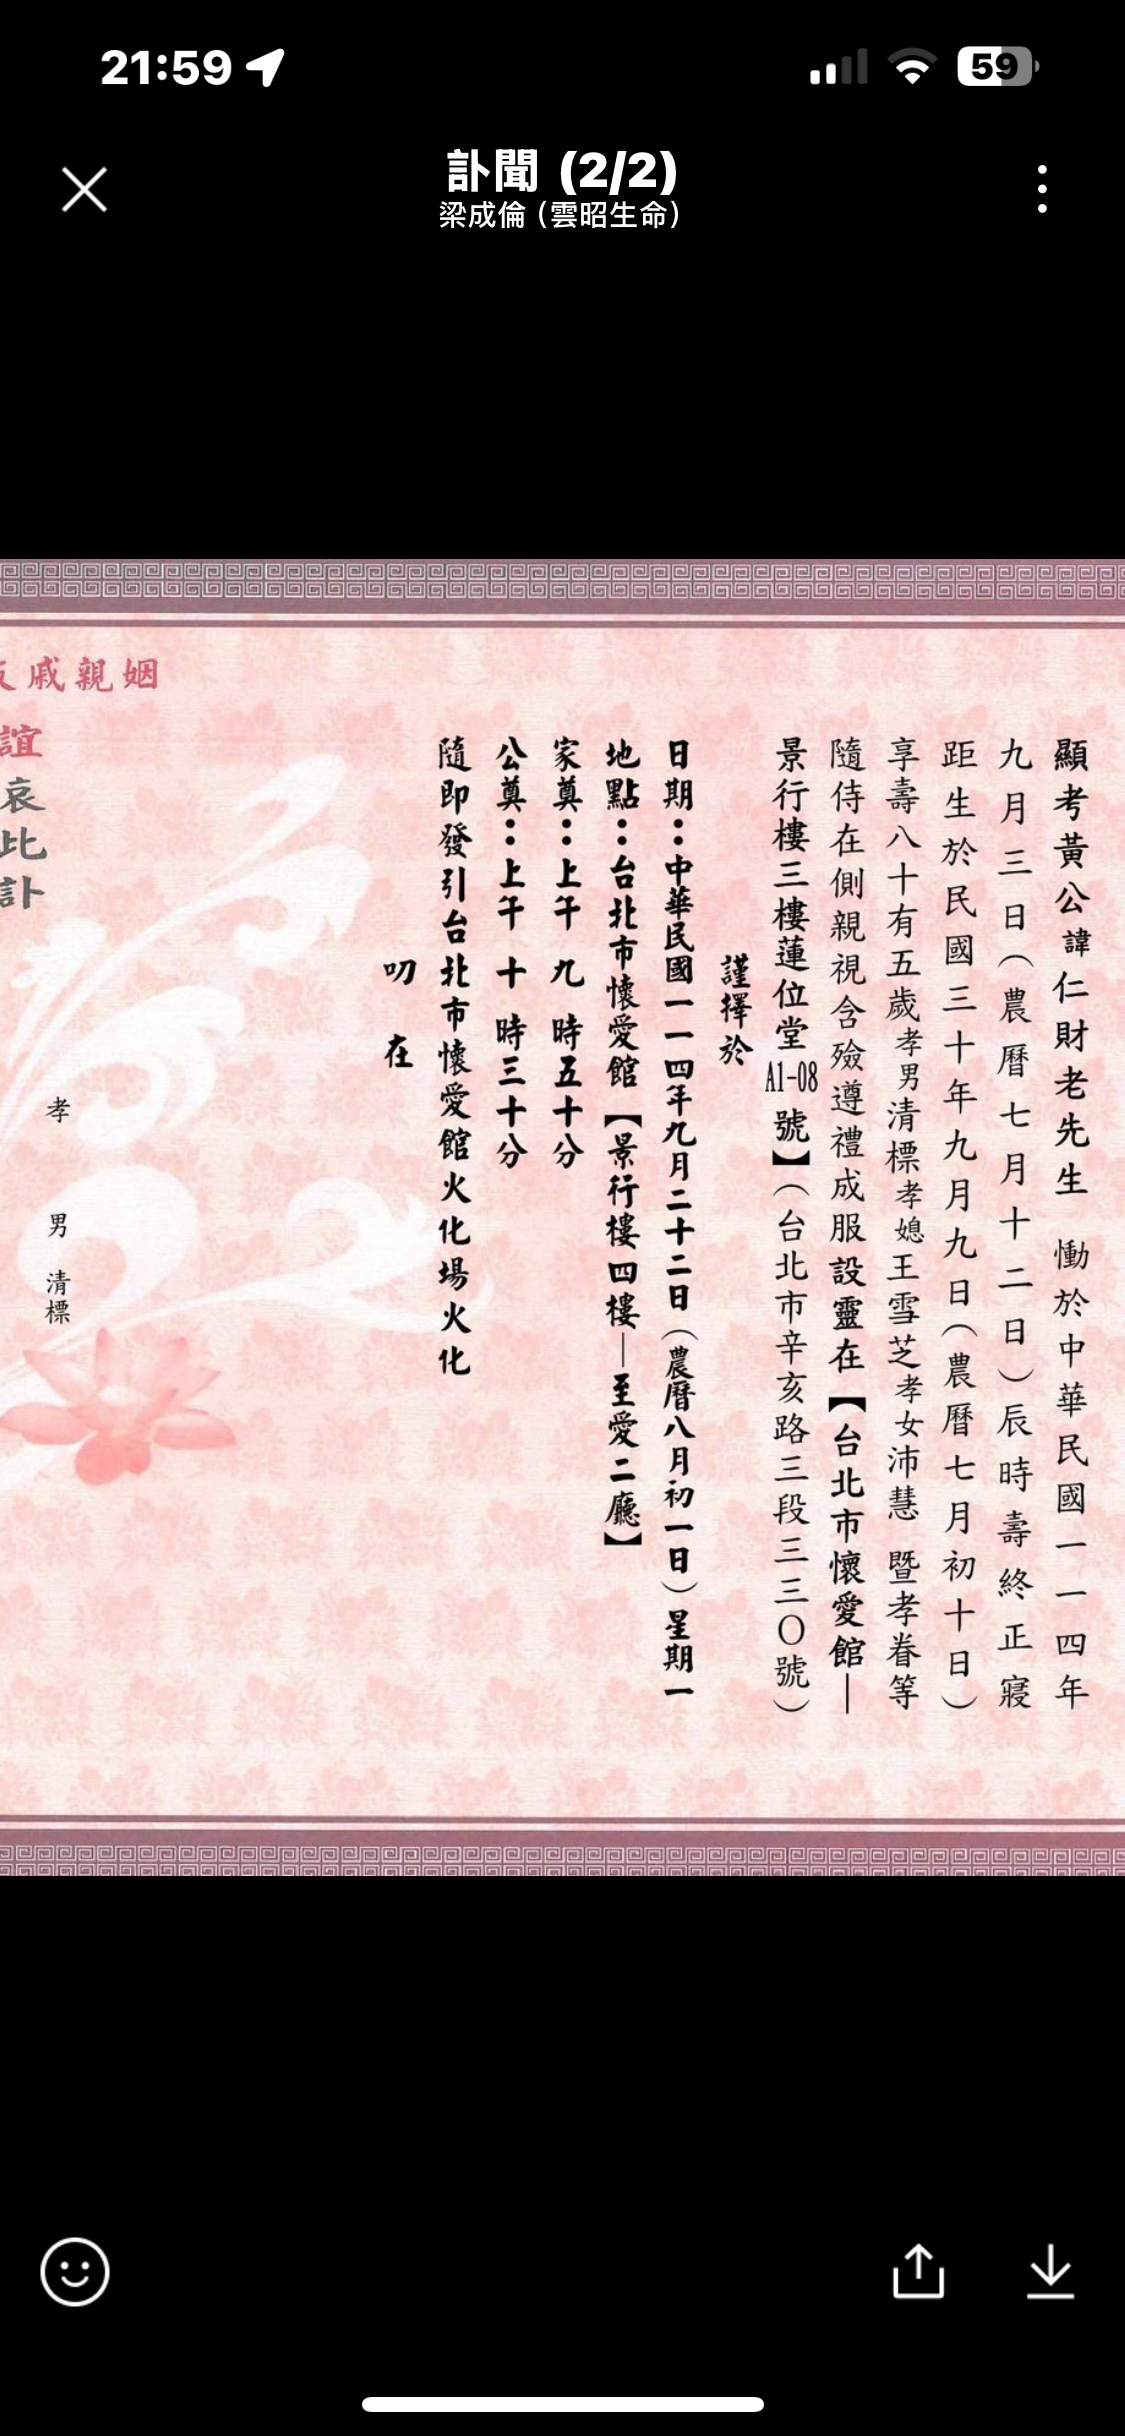 21:59
59
訃聞 (2/2)
梁成倫 (雲昭生命)
顯考黃公諱仁財老先生 慟於中華民國一一四年
九月三日(農曆七月十二日)辰時壽終正寢
距生於民國三十年九月九日(農曆七月初十日)
享壽八十有五歲孝男清標孝媳王雪芝孝女沛慧 暨孝眷等
隨侍在側親視含殮遵禮成服設靈在【台北市懷愛館—
景行樓三樓蓮位堂A1-08號】(台北市辛亥路三段三三〇號)
謹擇於
日期：中華民國一一四年九月二十二日(農曆八月初一日)星期一
地點：台北市懷愛館【景行樓四樓—至愛二廳】
家奠：上午 九 時五十分
公奠：上午 十 時三十分
隨即發引台北市懷愛館火化場火化
叨 在
姻親戚
誼哀此訃
孝 男 清標